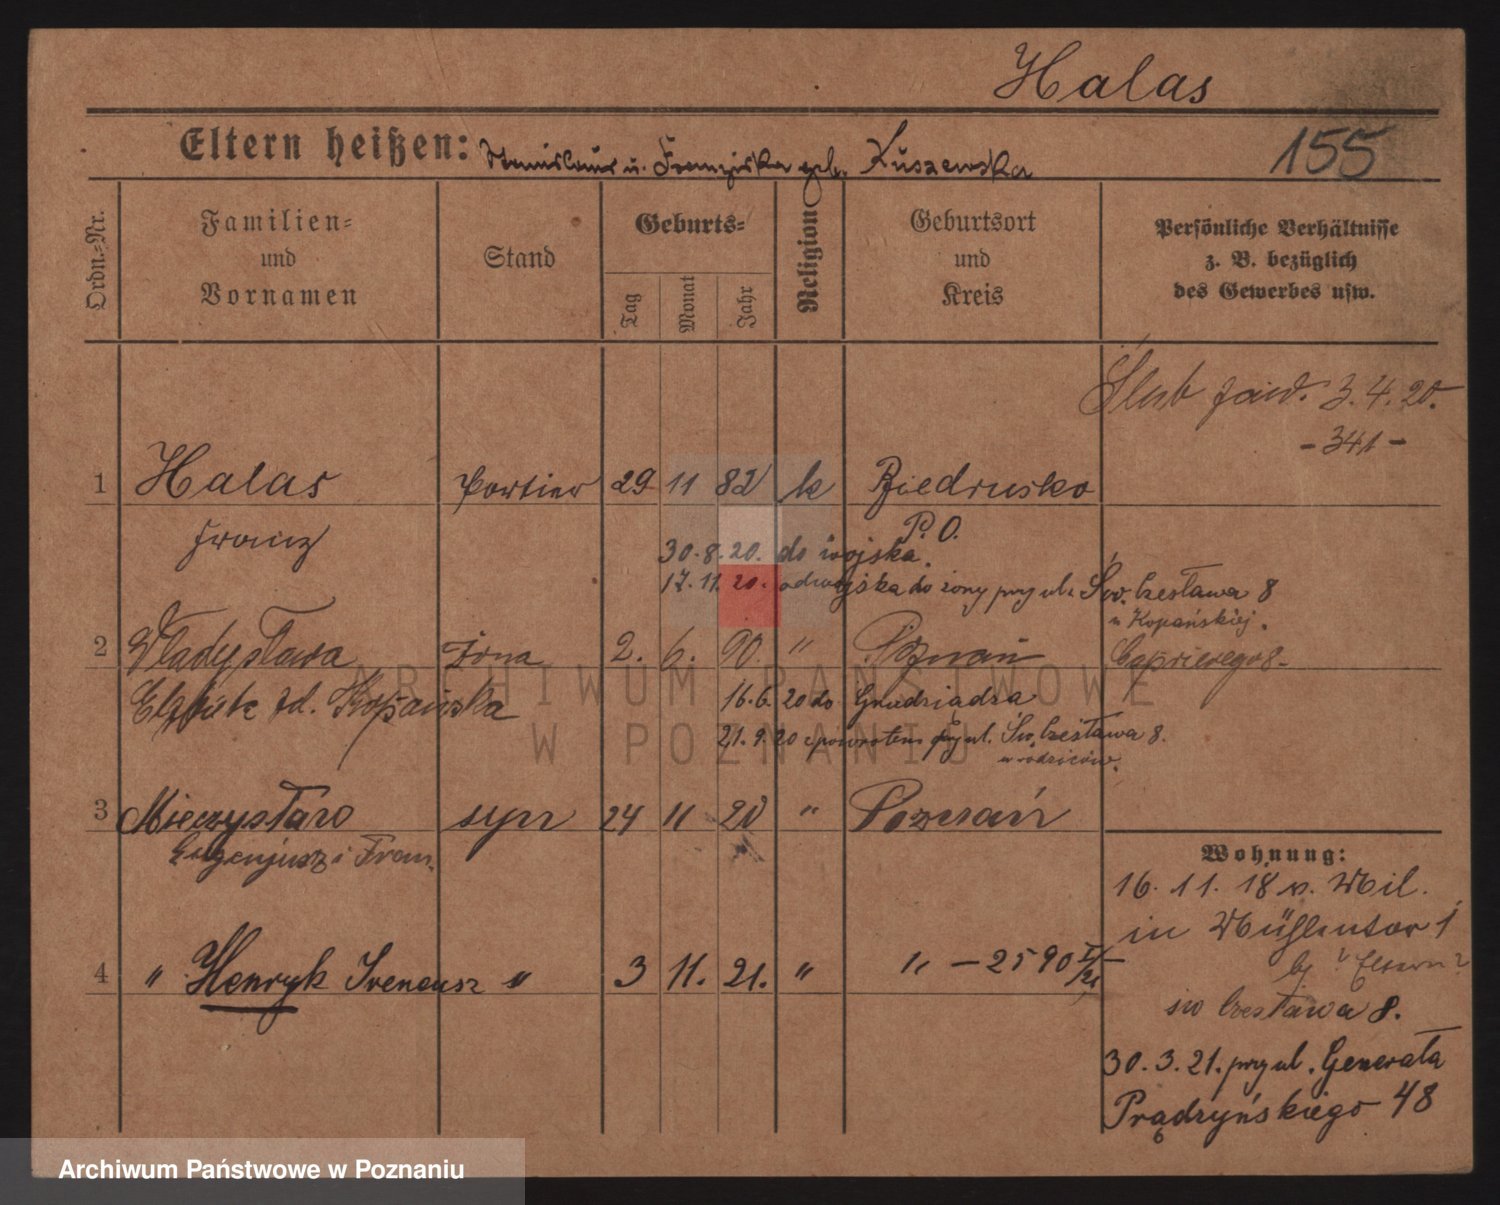 Halas
155
Eltern heißen: Stanislaus u. Franziska geb. Kuszewska
Ordn.-Nr.
Familien-
und
Vornamen
Stand
Geburts-
Tag
Monat
Jahr
Religion
Geburtsort
und
Kreis
Persönliche Verhältnisse
z. B. bezüglich
des Gewerbes usw.
Ślub zaw. 3.4.20.
- 341 -
1 Halas Portier 29 11 82 k Biedrusko
Franz P. O.
30.8.20. do wojska.
17.11.20. od wojska do żony przy ul. Św. Czesława 8
u Kopańskiej.
2 Władysława żona 2. 6. 90. " Poznań
Capriviego 8-
Elżbieta zd. Kopańska 16.6.20 do Grudziądza
21.9.20 z powrotem przy ul. Św. Czesława 8.
u rodziców.
3 Mieczysław syn 24 11 20 " Poznań
Eugenjusz i Fran.
4 " Henryk Ireneusz " 3 11. 21. " " - 2590 I/21
Wohnung:
16.11.18 v. Mil.
in Mühlentor 1
bj. " Eltern
św Czesława 8.
30.3.21. przy ul. Generała
Prądzyńskiego 48
ARCHIWUM PAŃSTWOWE
W POZNANIU
Archiwum Państwowe w Poznaniu